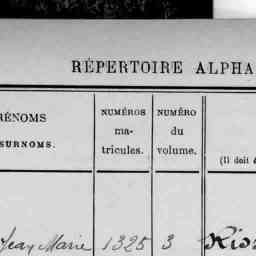 RÉPERTOIRE ALPHA
RÉNOMS
SURNOMS.
NUMÉROS
ma-
tricules.
NUMÉRO
du
volume.
(Il doit
Jean Marie 1325 3